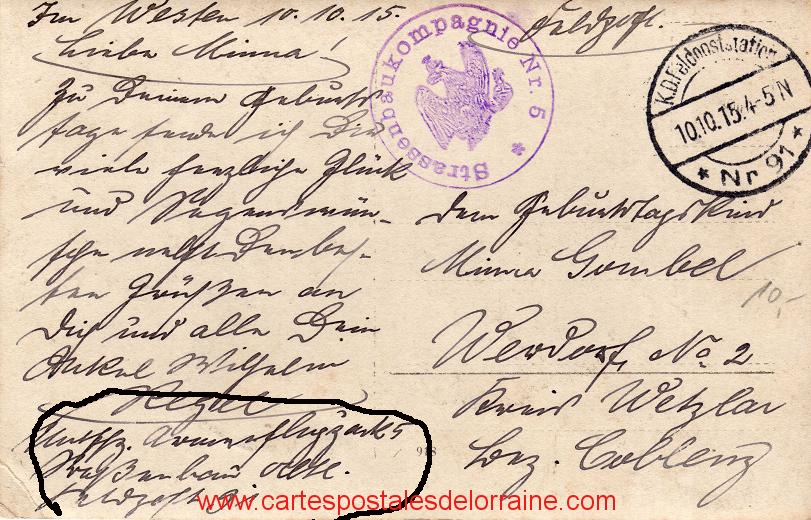 Im Westen 10.10.15.
Liebe Minna!
Zu Deinem Geburts
tage sende ich Dir
viele herzliche Glück
und Segenswün-
sche nebst den bes-
ten Grüßen an
Dich und alle Dein
Onkel Wilhelm
Armeeflugpark 5
Straßenbau
Feldpost
Feldpost.
Strassenbaukompagnie Nr. 5 *
K.D. Feldpoststation
10.10.15. 4-5 N
* Nr. 91 *
Dem Geburtstagskind
Minna Gombel
Werdorf, No 2
Kreis Wetzlar
Bez. Coblenz
10,-
www.cartespostalesdelorraine.com